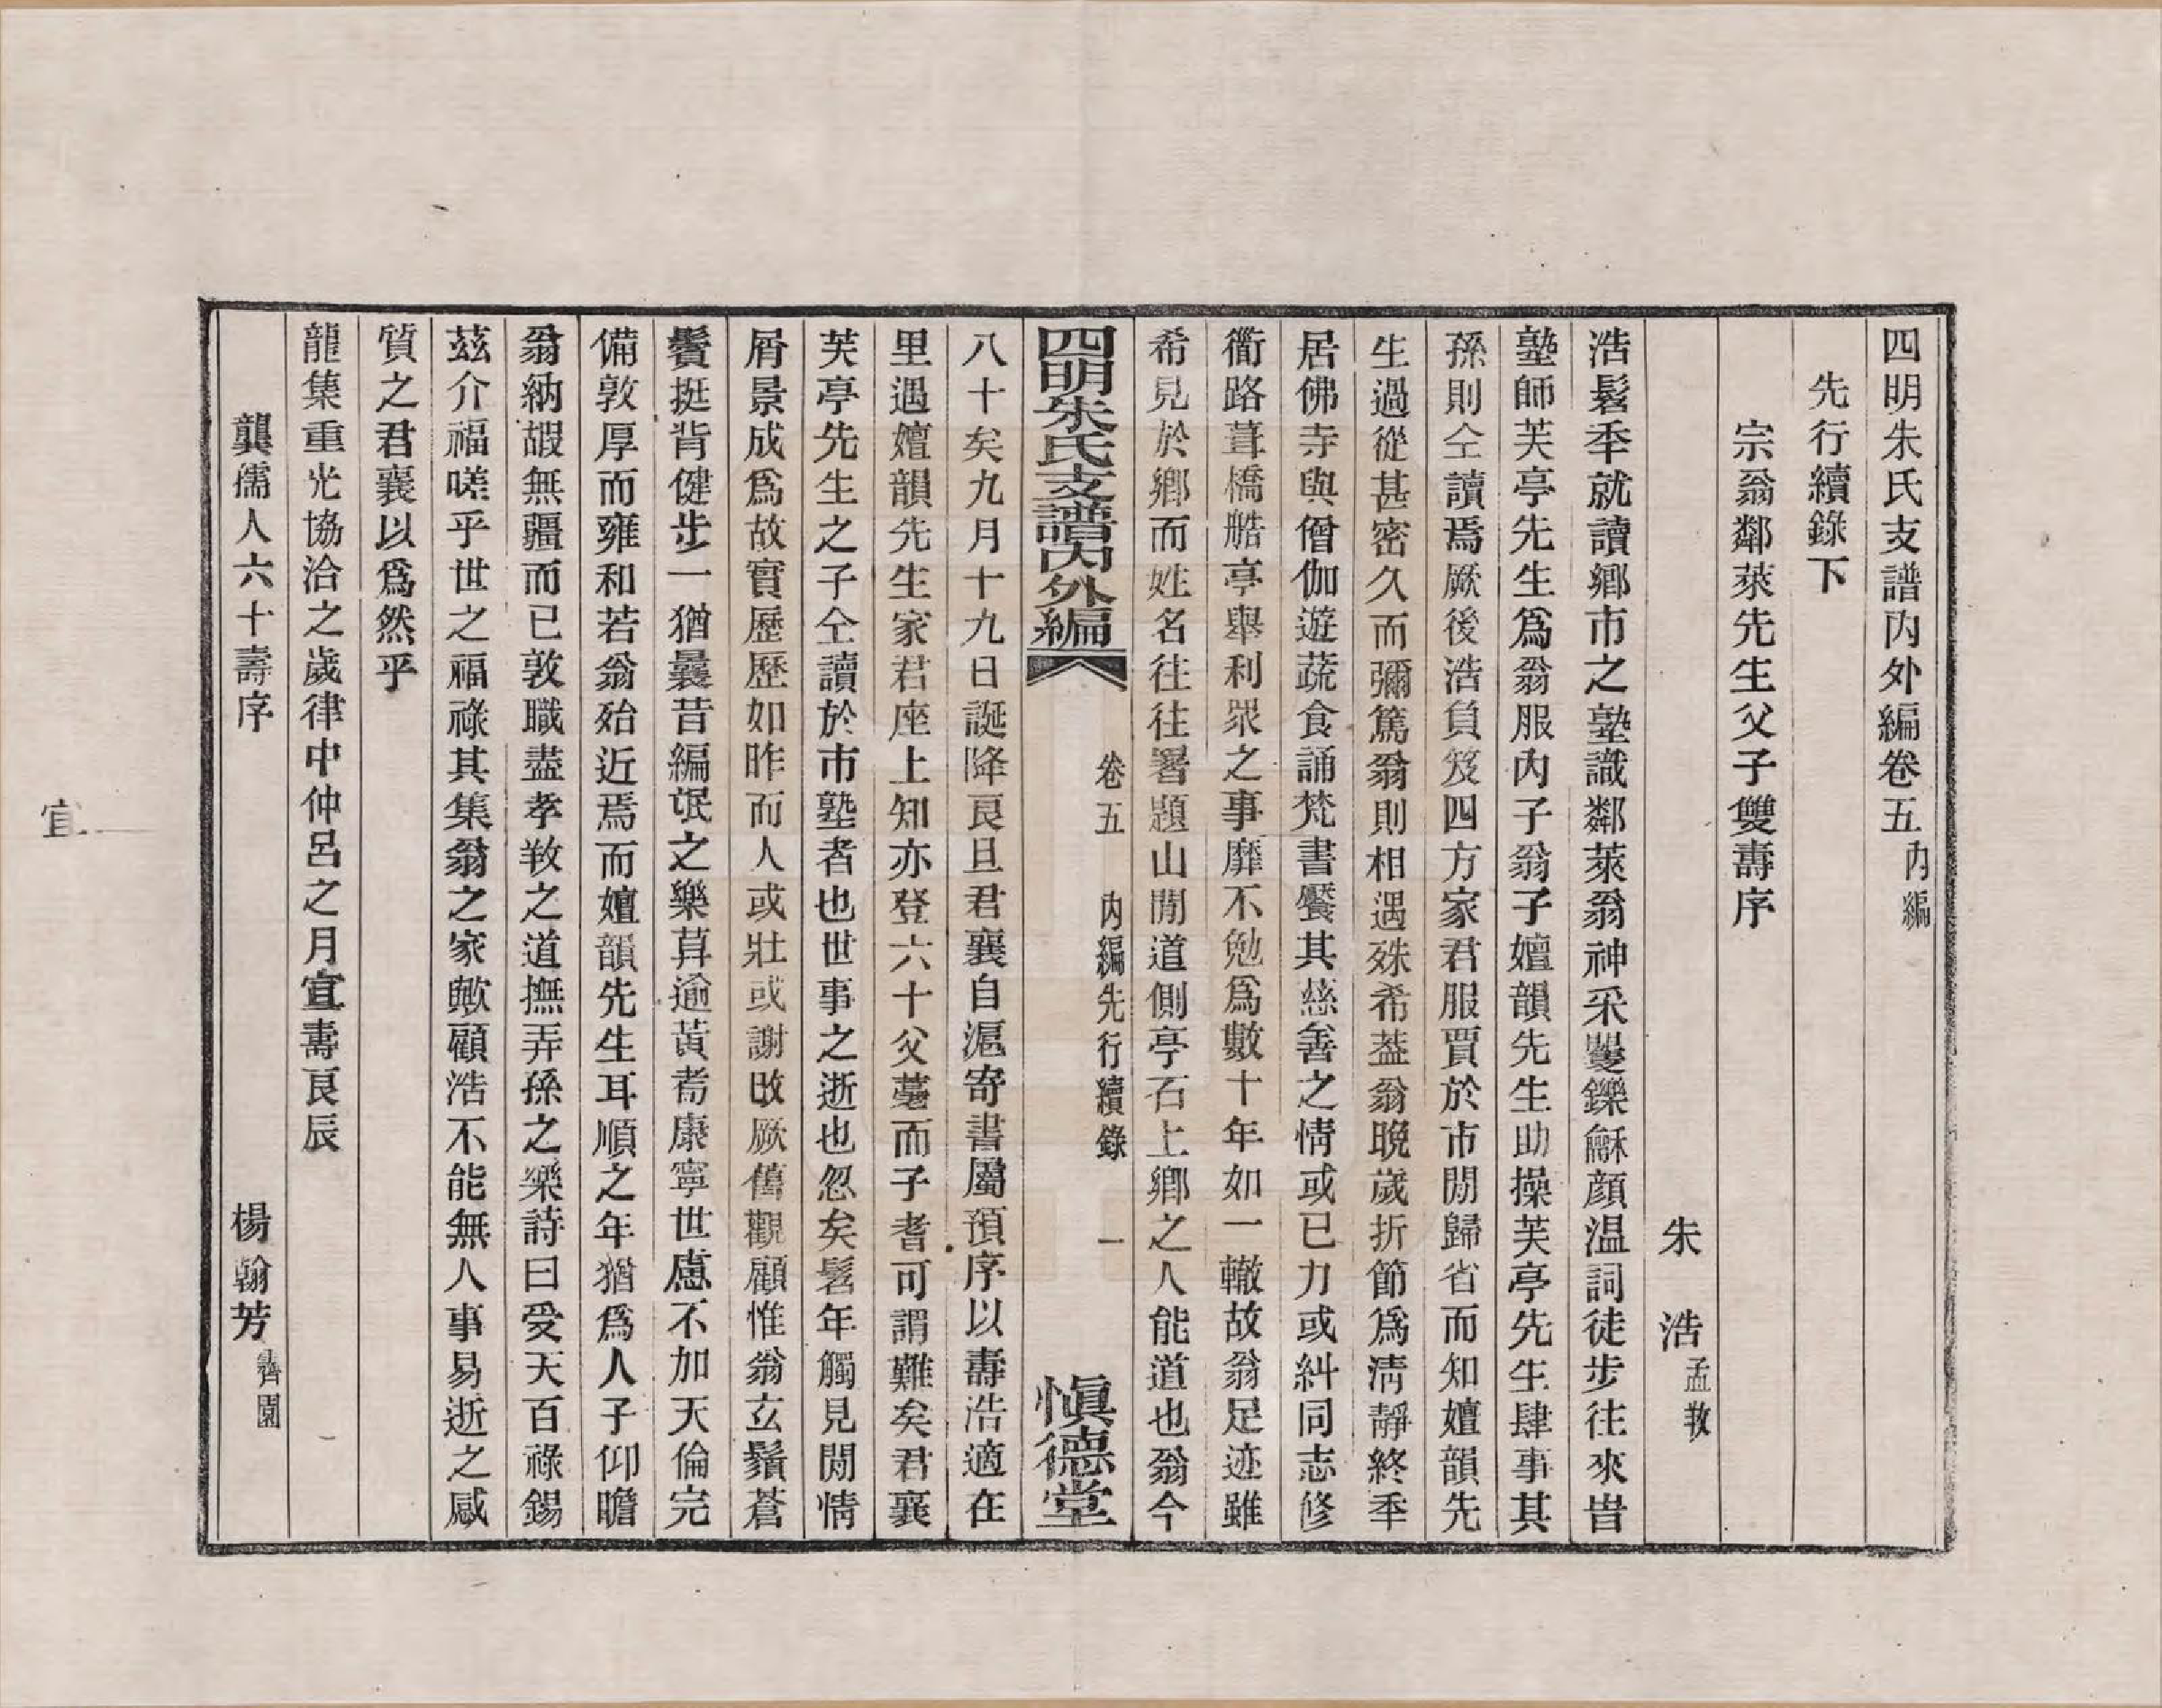 四明朱氏支譜內外編卷五內編
先行續錄下
宗翁鄰萊先生父子雙壽序
朱浩孟敎
浩髫秊就讀鄕市之塾識鄰萊翁神采矍鑠龢顏温詞徒步往來旹
塾師芙亭先生爲翁服內子翁子嬗韻先生助操芙亭先生肆事其
孫則仝讀焉厥後浩負笈四方家君服賈於市閒歸省而知嬗韻先
生過從甚密久而彌篤翁則相遇殊希葢翁晚歲折節爲淸靜終秊
居佛寺與僧伽遊蔬食誦梵書饜其慈善之情或已力或糾同志修
衢路葺橋艁亭舉利眾之事靡不勉爲數十年如一轍故翁足迹雖
希見於鄉而姓名往往署題山閒道側亭石上鄉之人能道也翁今
四明朱氏支譜內外編
卷五
內編先行續錄
一
愼德堂
八十矣九月十九日誕降良旦君襄自滬寄書屬預序以壽浩適在
里遇嬗韻先生家君座上知亦登六十父耋而子耆可謂難矣君襄
芙亭先生之子仝讀於市塾者也世事之逝也忽矣髫年觸見閒情
屑景成爲故實歷歷如昨而人或壯或謝改厥舊觀顧惟翁玄鬚蒼
鬢挺背健步一猶曩昔編氓之樂萛逾黃耇康寧世慮不加天倫完
備敦厚而雍和若翁殆近焉而嬗韻先生耳順之年猶爲人子仰瞻
翁納嘏無疆而已敦職盡孝敎之道撫弄孫之樂詩曰受天百祿錫
茲介福嗟乎世之福祿其集翁之家歟顧浩不能無人事易逝之感
質之君襄以爲然乎
龍集重光協洽之歲律中仲呂之月宣壽良辰
龔孺人六十壽序
楊翰芳霽園
宣